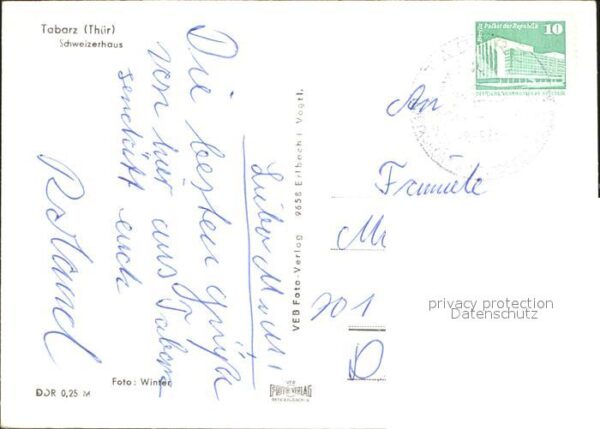 Tabarz (Thür)
Schweizerhaus
Die besten Grüße
von hier aus Tabarz
sendet euch
Roland
Foto: Winter
DDR 0,25 M
VEB Foto-Verlag 9658 Erlbach i. Vogtl.
VEB
FOTO-VERLAG
10
Berlin Palast der Republik
An
Familie
M
701
privacy protection
Datenschutz